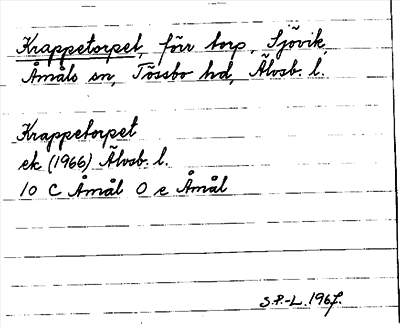 Krappetorpet, förr torp, Sjövik,
Åmåls sn, Tössbo hd, Älvsb. l.
Krappetorpet
ek (1966) Älvsb. l.
10 C Åmål O e Åmål
S.P.-L. 1967.